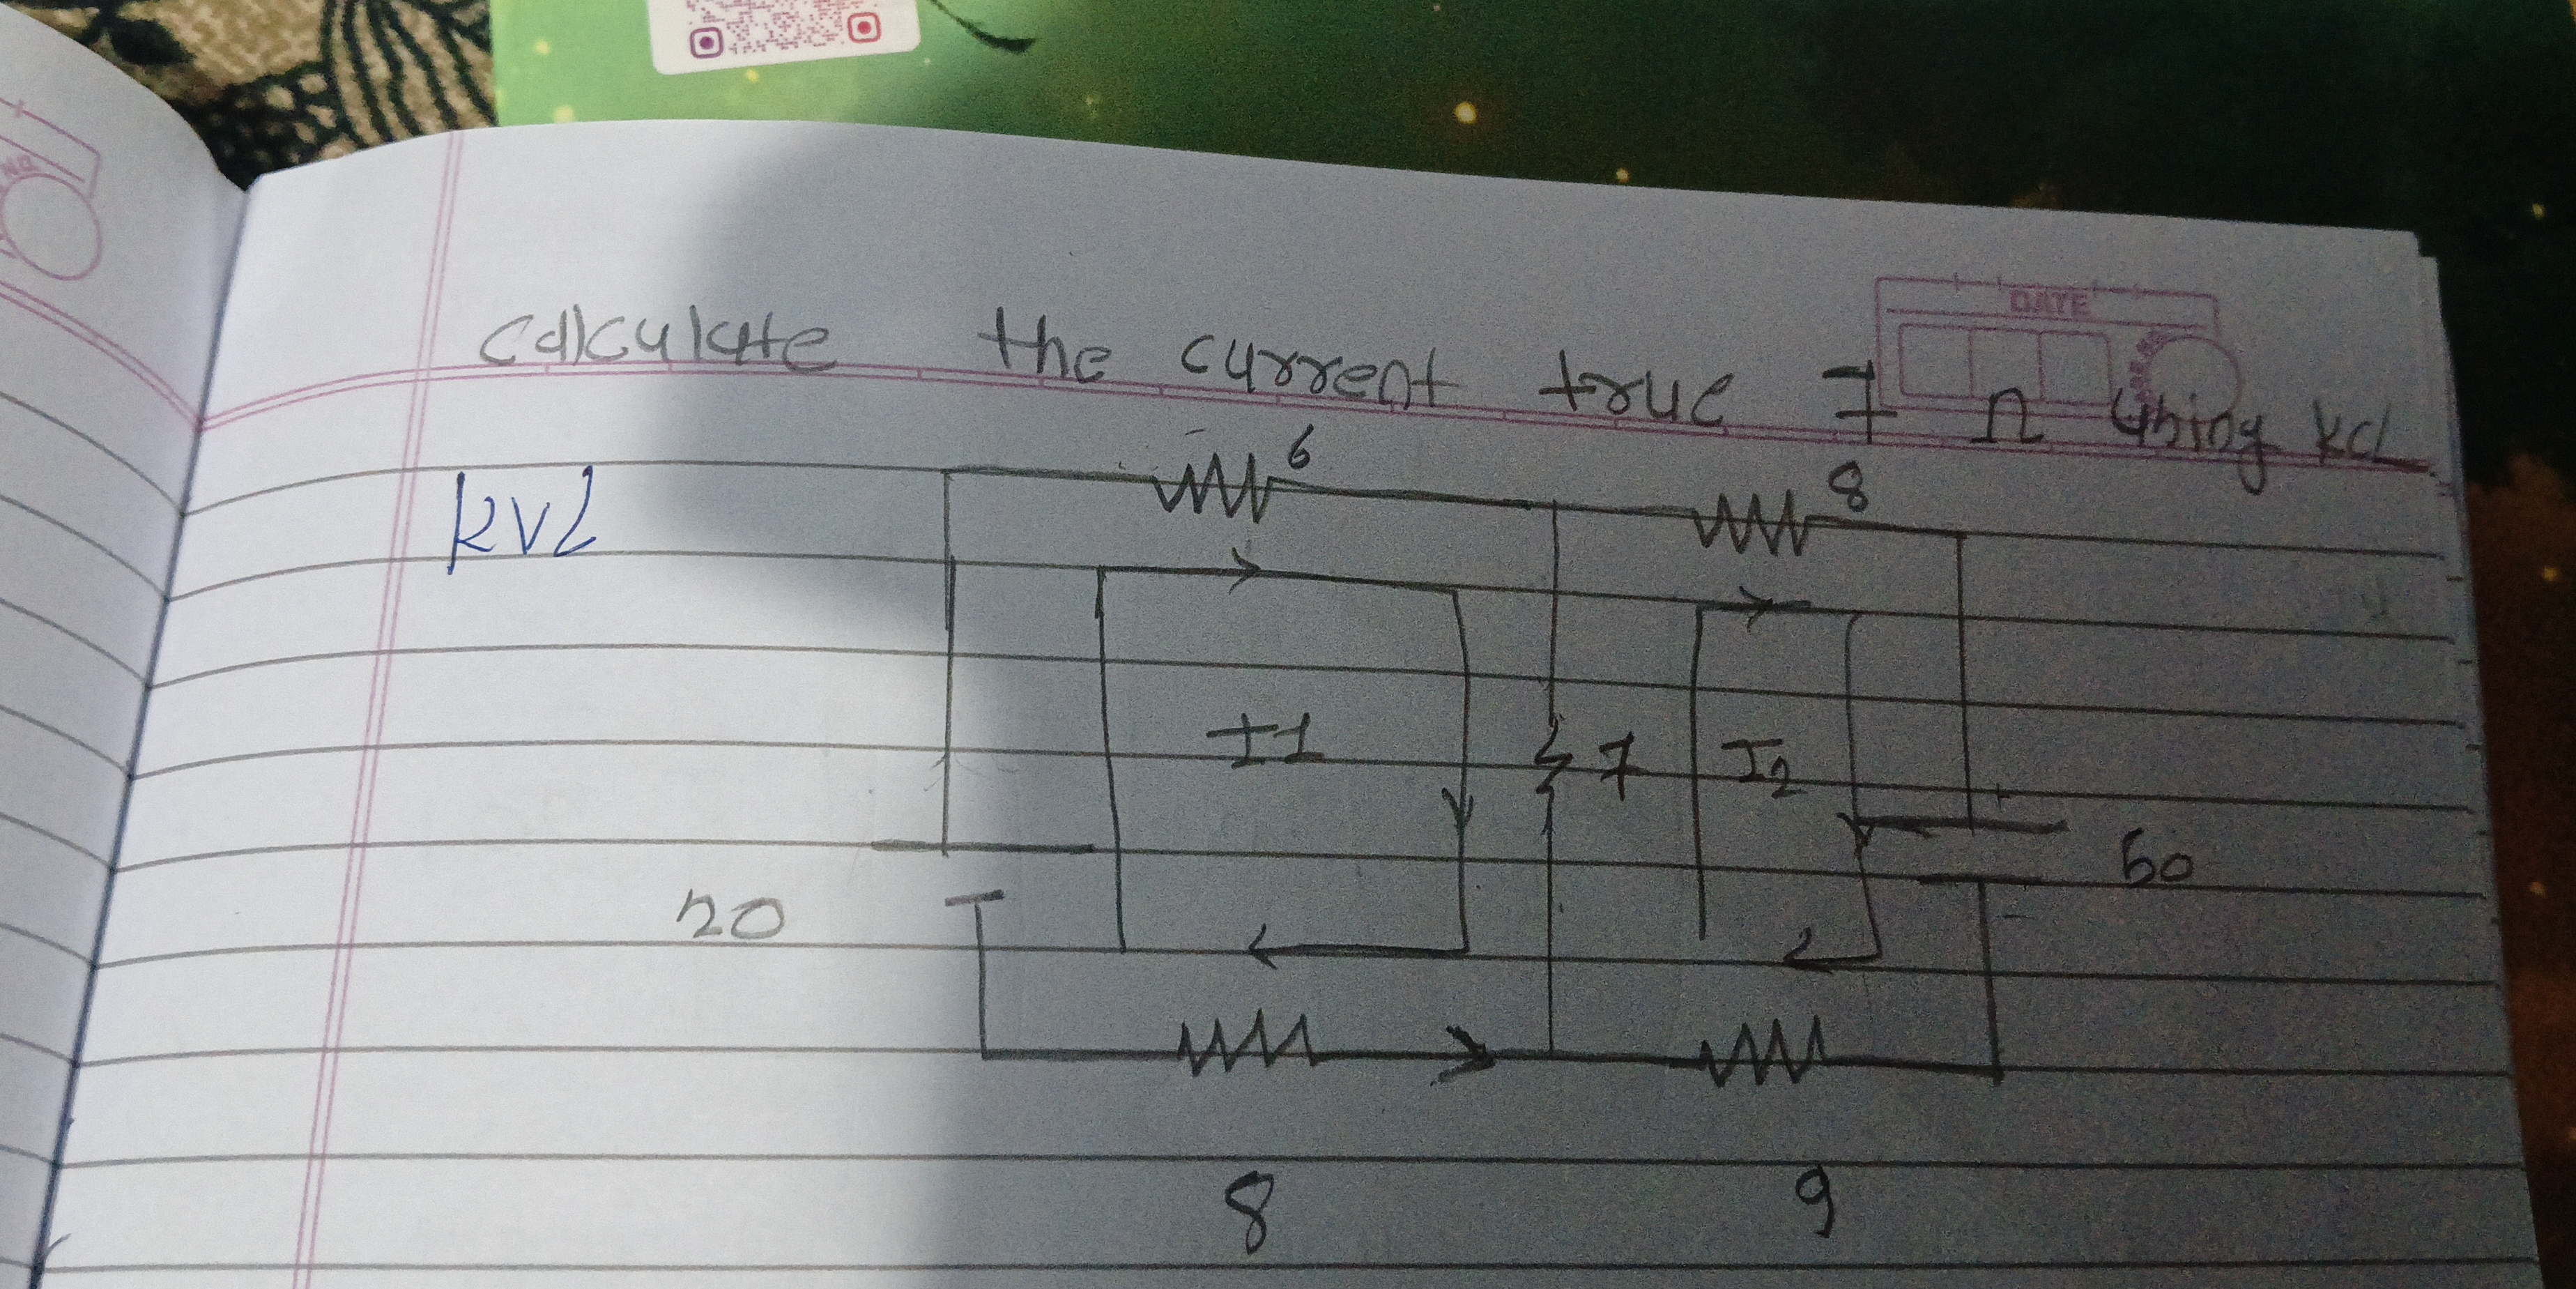 DATE
calculate the current true 7 Ω using KCL
KVL
6
8
I1
7
I2
20
50
8
9